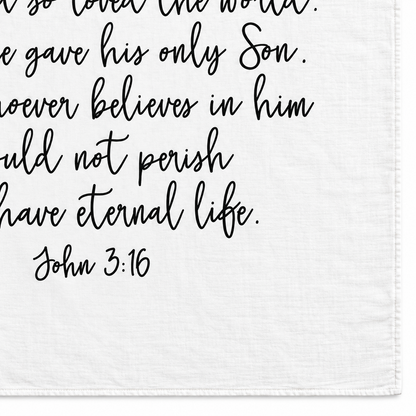 so loved the world.
e gave his only Son.
hoever believes in him
ould not perish
have eternal life.
John 3:16